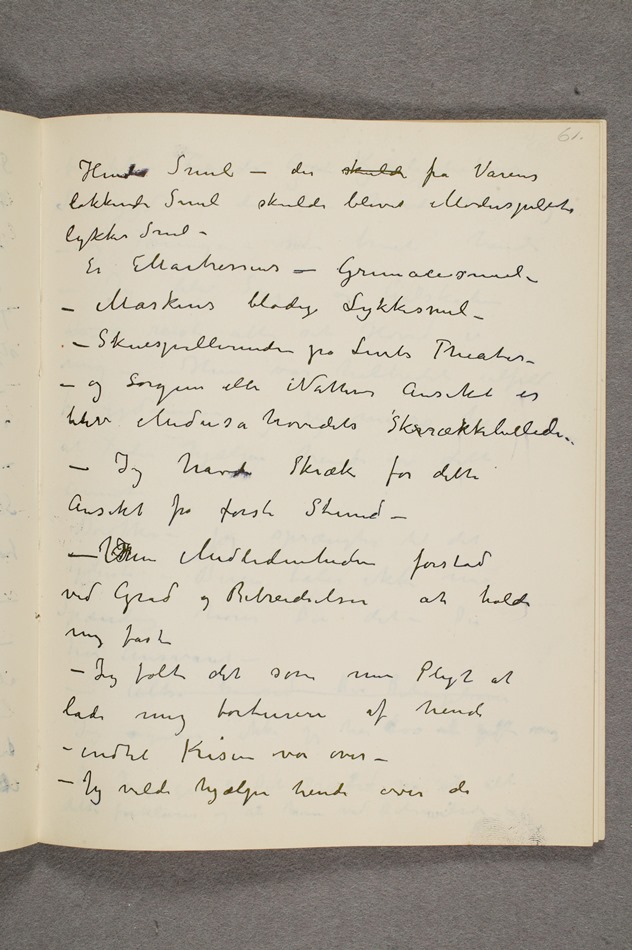 61.
Hendes Smil – der skulde fra Varens
lokkende Smil skulde blevet Moderspilets
lykke Smil –
Er Martrernes – Grimacesmil –
– Maskens blodige Lykkesmil –
– Skuespillerinden på Livets Theater –
– og Sorgens eller Nattens Ansikt er
blev Medusahovedets Skrækkbillede..
– Jeg havde Skræk for dette
Ansikt fra første Stund –
– Men Medlidenheden forstod
ved Gråd og Bebreidelser at holde
mig fast
– Jeg følte det som min Pligt at
lade mig torturere af hende
– indtil Krisen var over –
– Jg vilde hjælpe hende over de